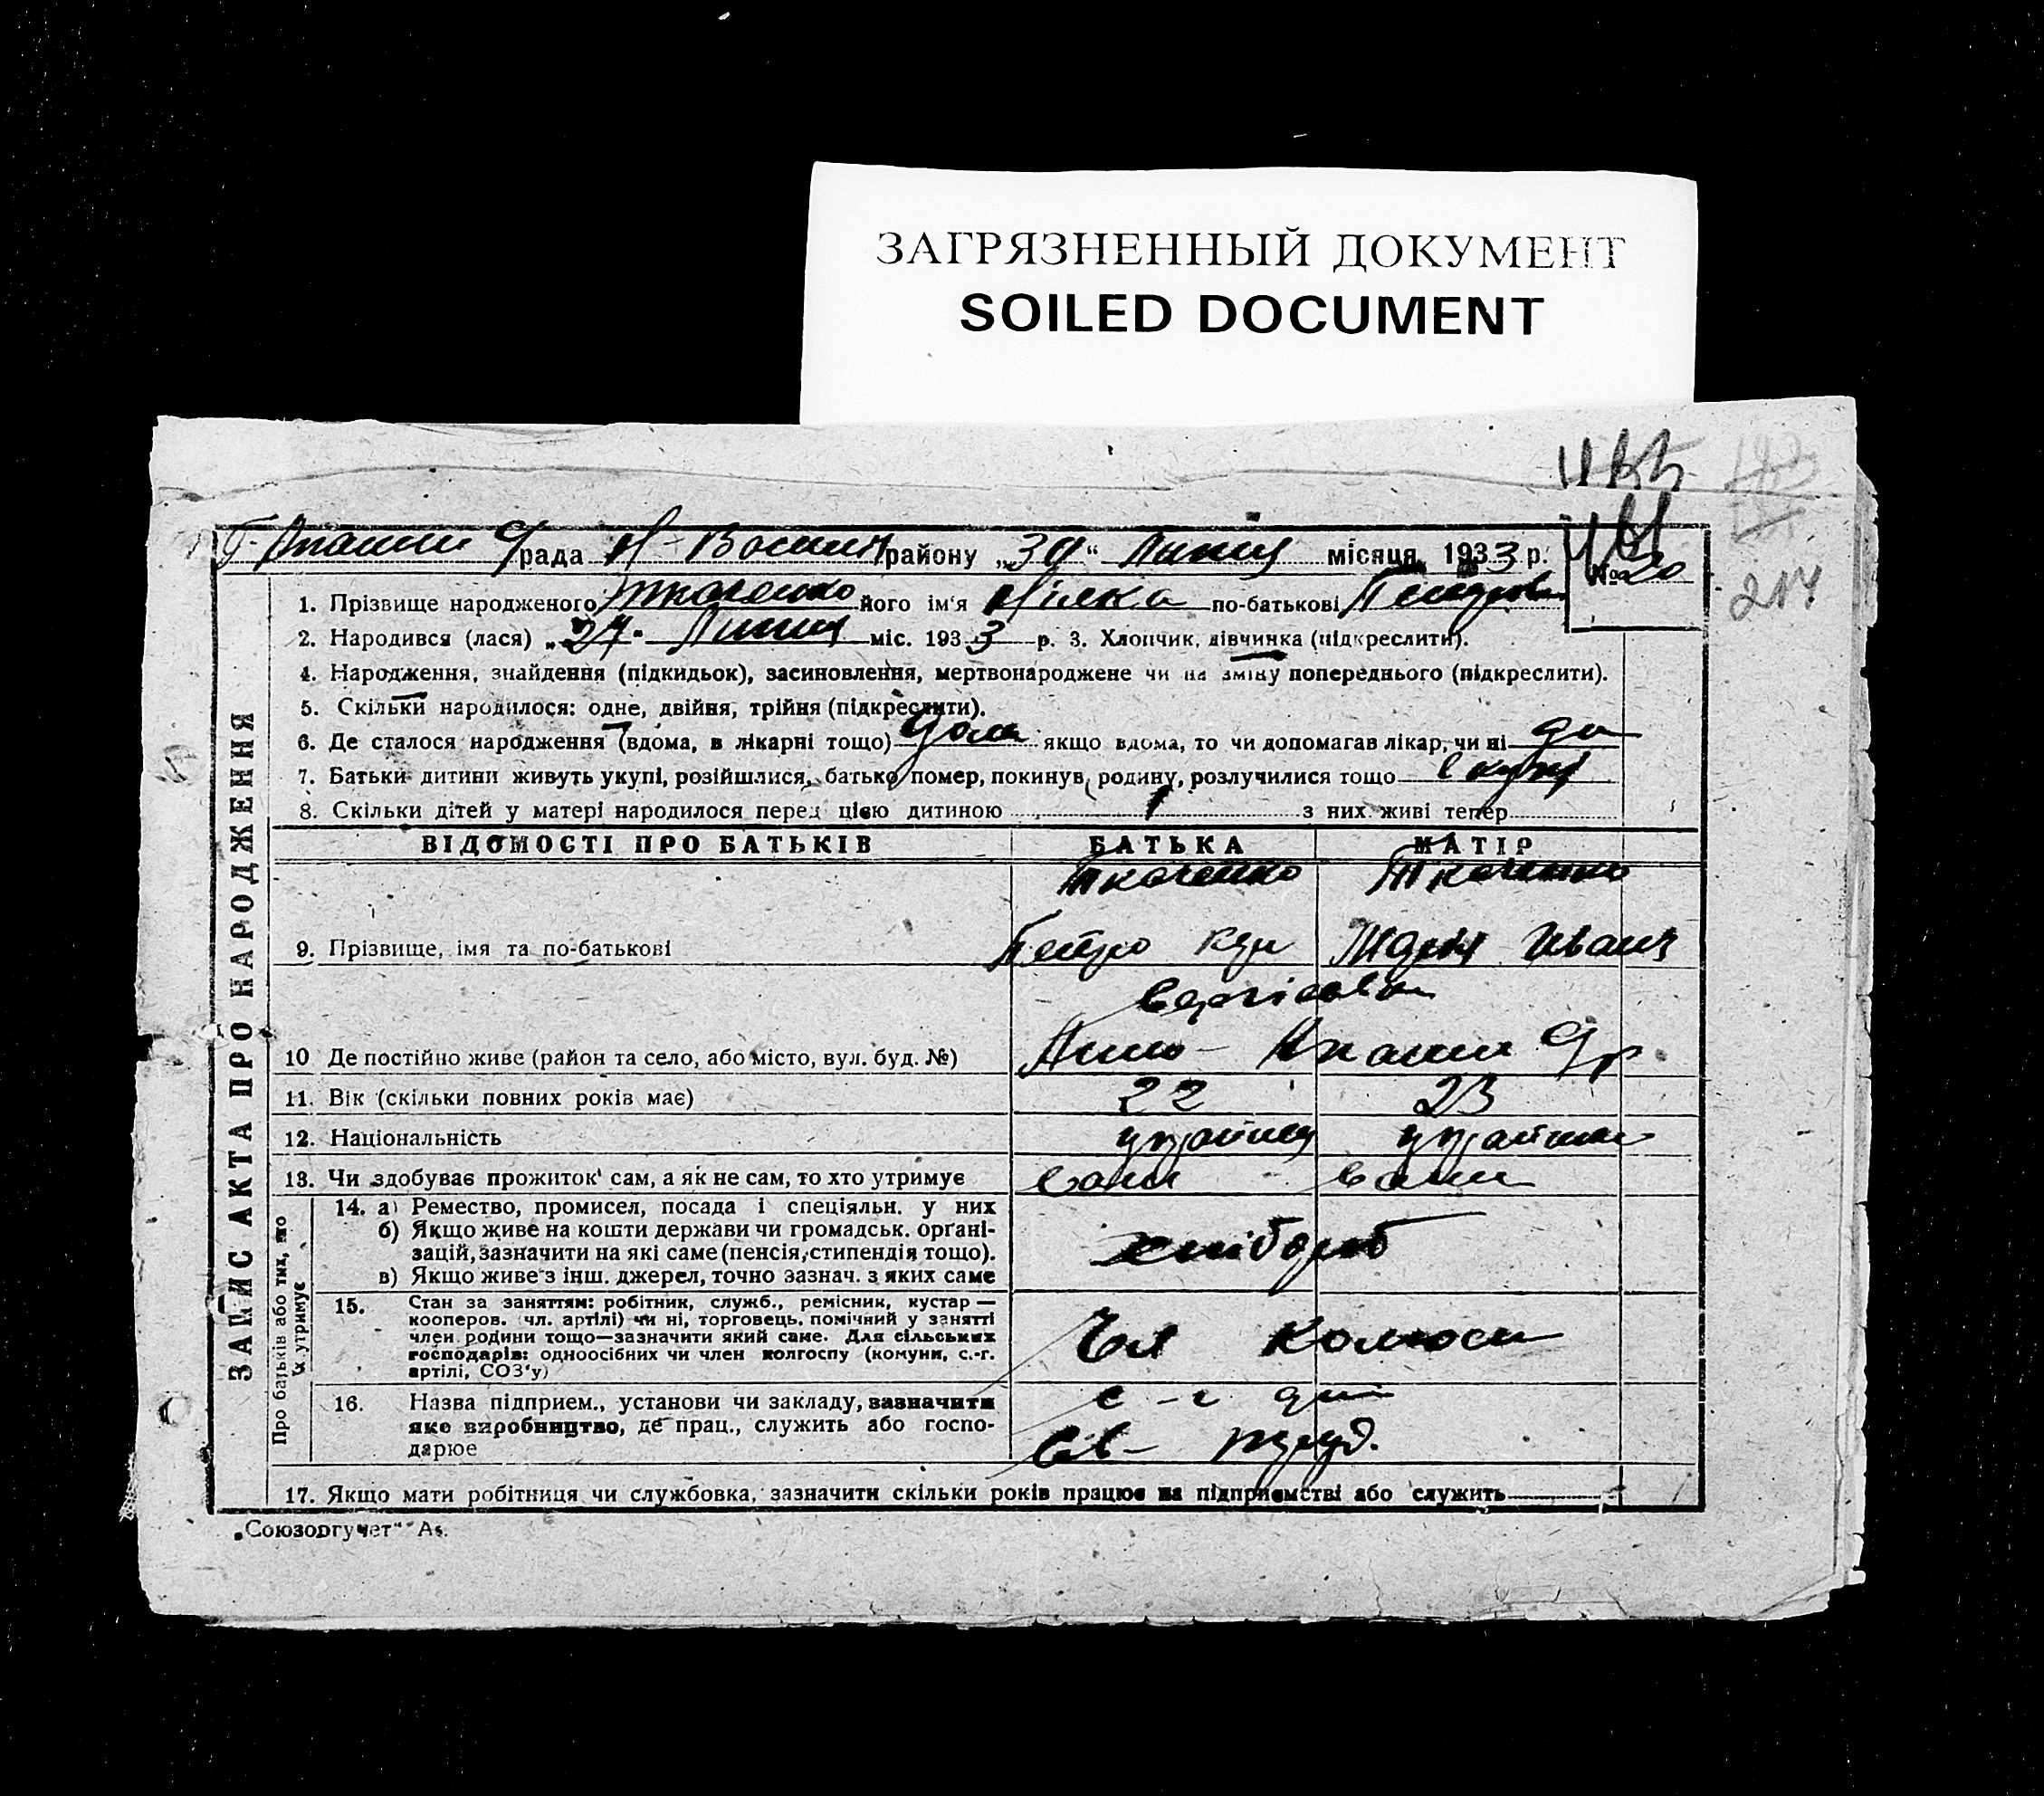 ЗАГРЯЗНЕННЫЙ ДОКУМЕНТ
SOILED DOCUMENT
217
рада району „30“ Липня місяця 1933 р. № 20
ЗАПИС АКТА ПРО НАРОДЖЕННЯ
1. Прізвище народженого Ткаченко його ім'я по-батькові
2. Народився (лася) „27“ Липня міс. 1933 р. 3. Хлопчик, дівчинка (підкреслити).
4. Народження, знайдення (підкидьок), засиновлення, мертвонароджене чи на зміну попереднього (підкреслити).
5. Скільки народилося: одне, двійня, трійня (підкреслити).
6. Де сталося народження (вдома, в лікарні тощо) дома якщо вдома, то чи допомагав лікар, чи ні да
7. Батьки дитини живуть укупі, розійшлися, батько помер, покинув родину, розлучилися тощо вкупі
8. Скільки дітей у матері народилося перед цією дитиною 1 з них живі тепер
ВІДОМОСТІ ПРО БАТЬКІВ БАТЬКА МАТІР
Ткаченко Ткаченко
9. Прізвище, імя та по-батькові Петро Марія Иван
10 Де постійно живе (район та село, або місто, вул. буд. №)
11. Вік (скільки повних років має) 22 23
12. Національність українец українка
13. Чи здобуває прожиток сам, а як не сам, то хто утримує сами сами
Про батьків або тих, хто їх утримує
14. а) Ремество, промисел, посада і спеціяльн. у них
б) Якщо живе на кошти держави чи громадськ. орґані-
зацій, зазначити на які саме (пенсія, стипендія тощо).
в) Якщо живе з інш. джерел, точно зазнач. з яких саме
хлібороб
15. Стан за заняттям: робітник, служб., ремісник, кустар —
кооперов. чл. артілі) чи ні, торговець, помічний у занятті
член родини тощо—зазначити який саме. Для сільських
господарів: одноосібних чи член колгоспу (комуни, с.-г.
артілі, СОЗ'у)
Чл
16. Назва підприєм., установи чи закладу, зазначити
яке виробництво, де прац., служить або госпо-
дарює
с-г
17. Якщо мати робітниця чи службовка, зазначити скільки років працює на підприємстві або служить
„Союзоргучет“